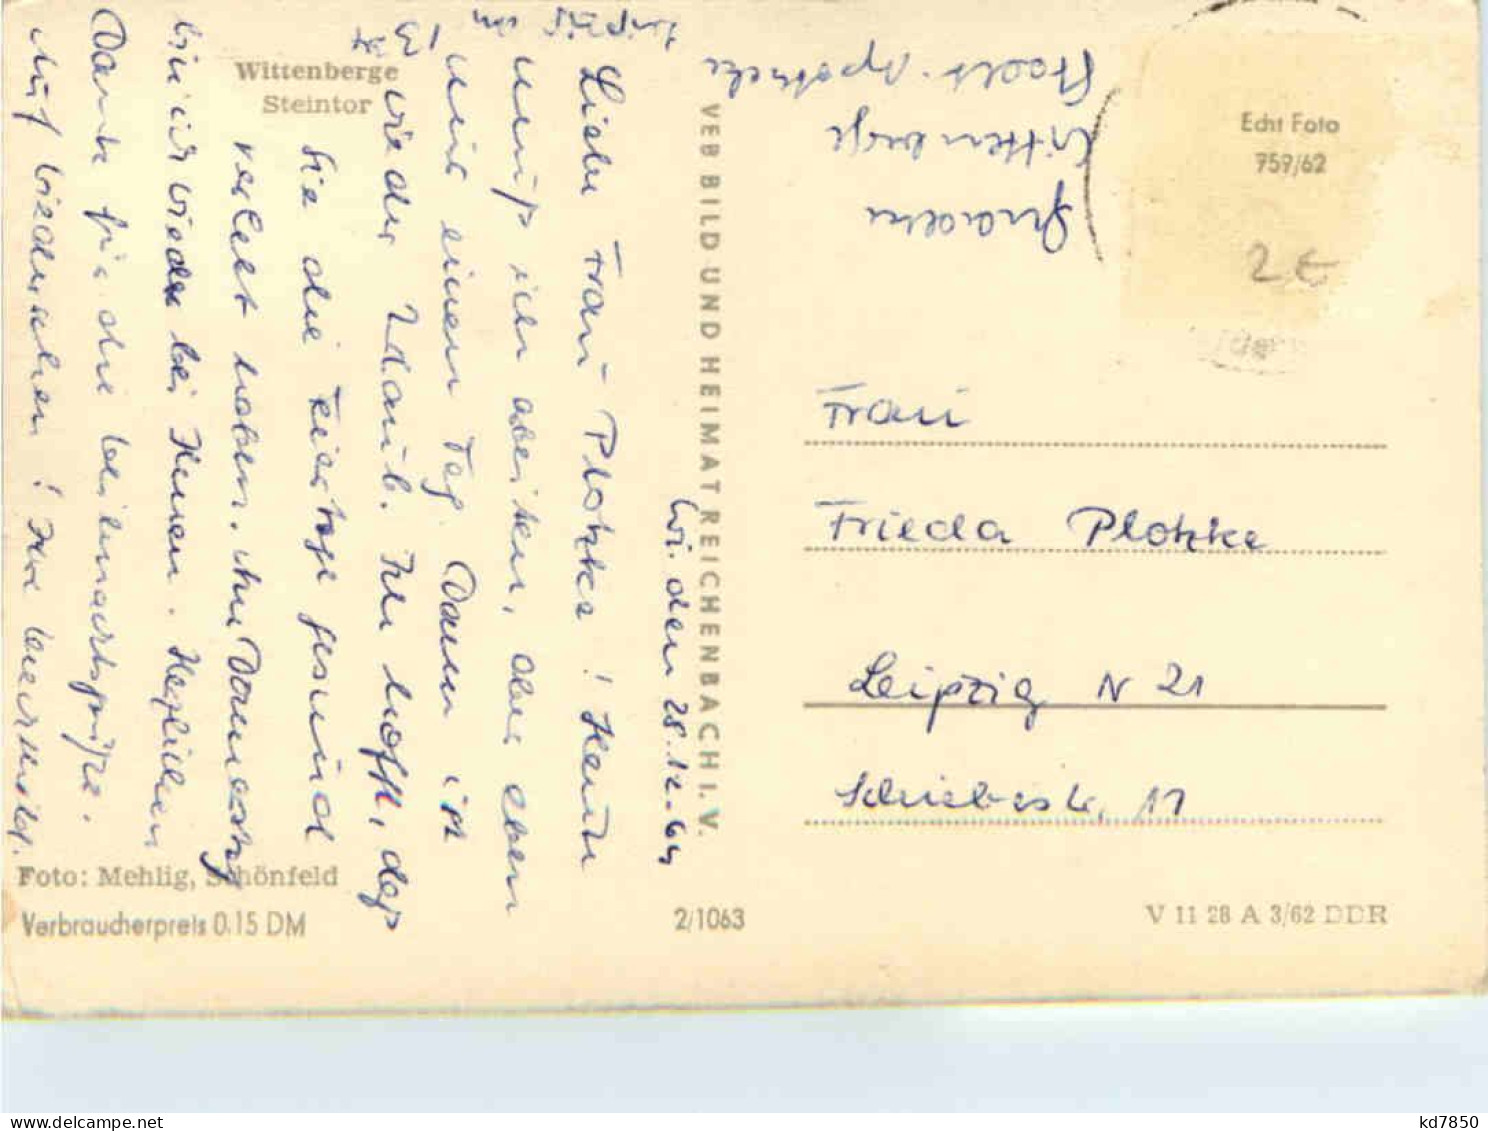 Wittenberge
Steintor
Wi. den 28.12.64
Liebe Frau Plotzke! Heute
muß ich arbeiten, aber eben
nur einen Tag. Dann ist
wieder Urlaub. Ich hoffe, daß
Sie die Feiertage gesund
verlebt haben. Am Donnerstag
bin ich wieder bei Ihnen. Herzlichen
Dank für die Weihnachtsgrüße.
Auf Wiedersehen! Ihre
Leipzig
13
Wittenberge
Stadt-Apotheke
VEB BILD UND HEIMAT REICHENBACH I. V.
Echt Foto
759/62
2 €
Frau
Frieda Plotzke
Leipzig N 21
11
Foto: Mehlig, Schönfeld
Verbraucherpreis 0,15 DM
2/1063
V 11 28 A 3/62 DDR
kd7850